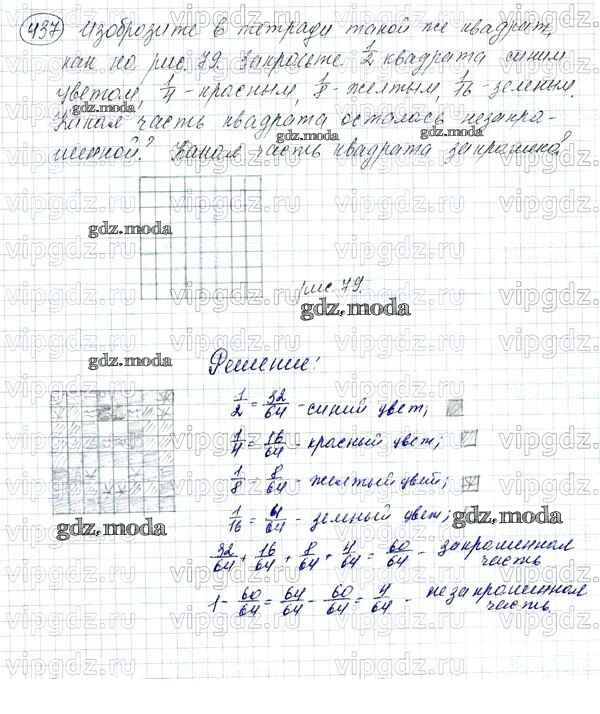 437 Изобразите в тетради такой же квадрат,
как на рис. 79. Закрасьте 1/2 квадрата синим
цветом, 1/4 - красным, 1/8 - желтым, 1/16 - зеленым.
gdz.moda
Какая часть квадрата осталась незакра-
gdz.moda gdz.moda
шенной? Какая часть квадрата закрашена?
gdz.moda
рис. 79.
gdz.moda
Решение:
gdz.moda
1/2 = 32/64 - синий цвет;
1/4 = 16/64 - красный цвет;
1/8 = 8/64 - желтый цвет;
1/16 = 4/64 - зеленый цвет;
gdz.moda gdz.moda
32/64 + 16/64 + 8/64 + 4/64 = 60/64 - закрашенная
часть
1 - 60/64 = 64/64 - 60/64 = 4/64 - незакрашенная
часть.
vipgdz.ru